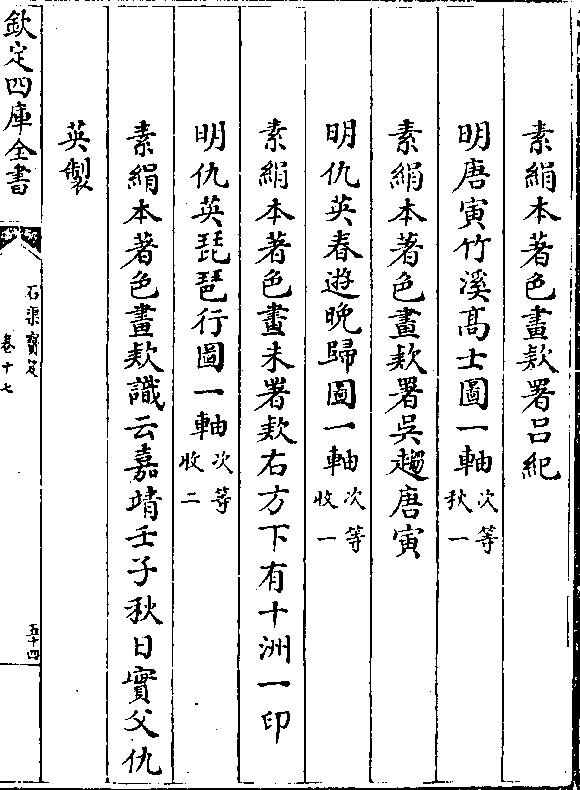 素絹本著色畫欵署呂紀
明唐寅竹溪髙士圖一軸次等秋一
素絹本著色畫欵署吳趨唐寅
明仇英春遊晩歸圖一軸次等收一
素絹本著色畫未署欵右方下有十洲一印
明仇英琵琶行圖一軸次等收二
素絹本著色畫欵識云嘉靖壬子秋日實父仇
英製
欽定四庫全書
石渠寳笈
卷十七
五十四